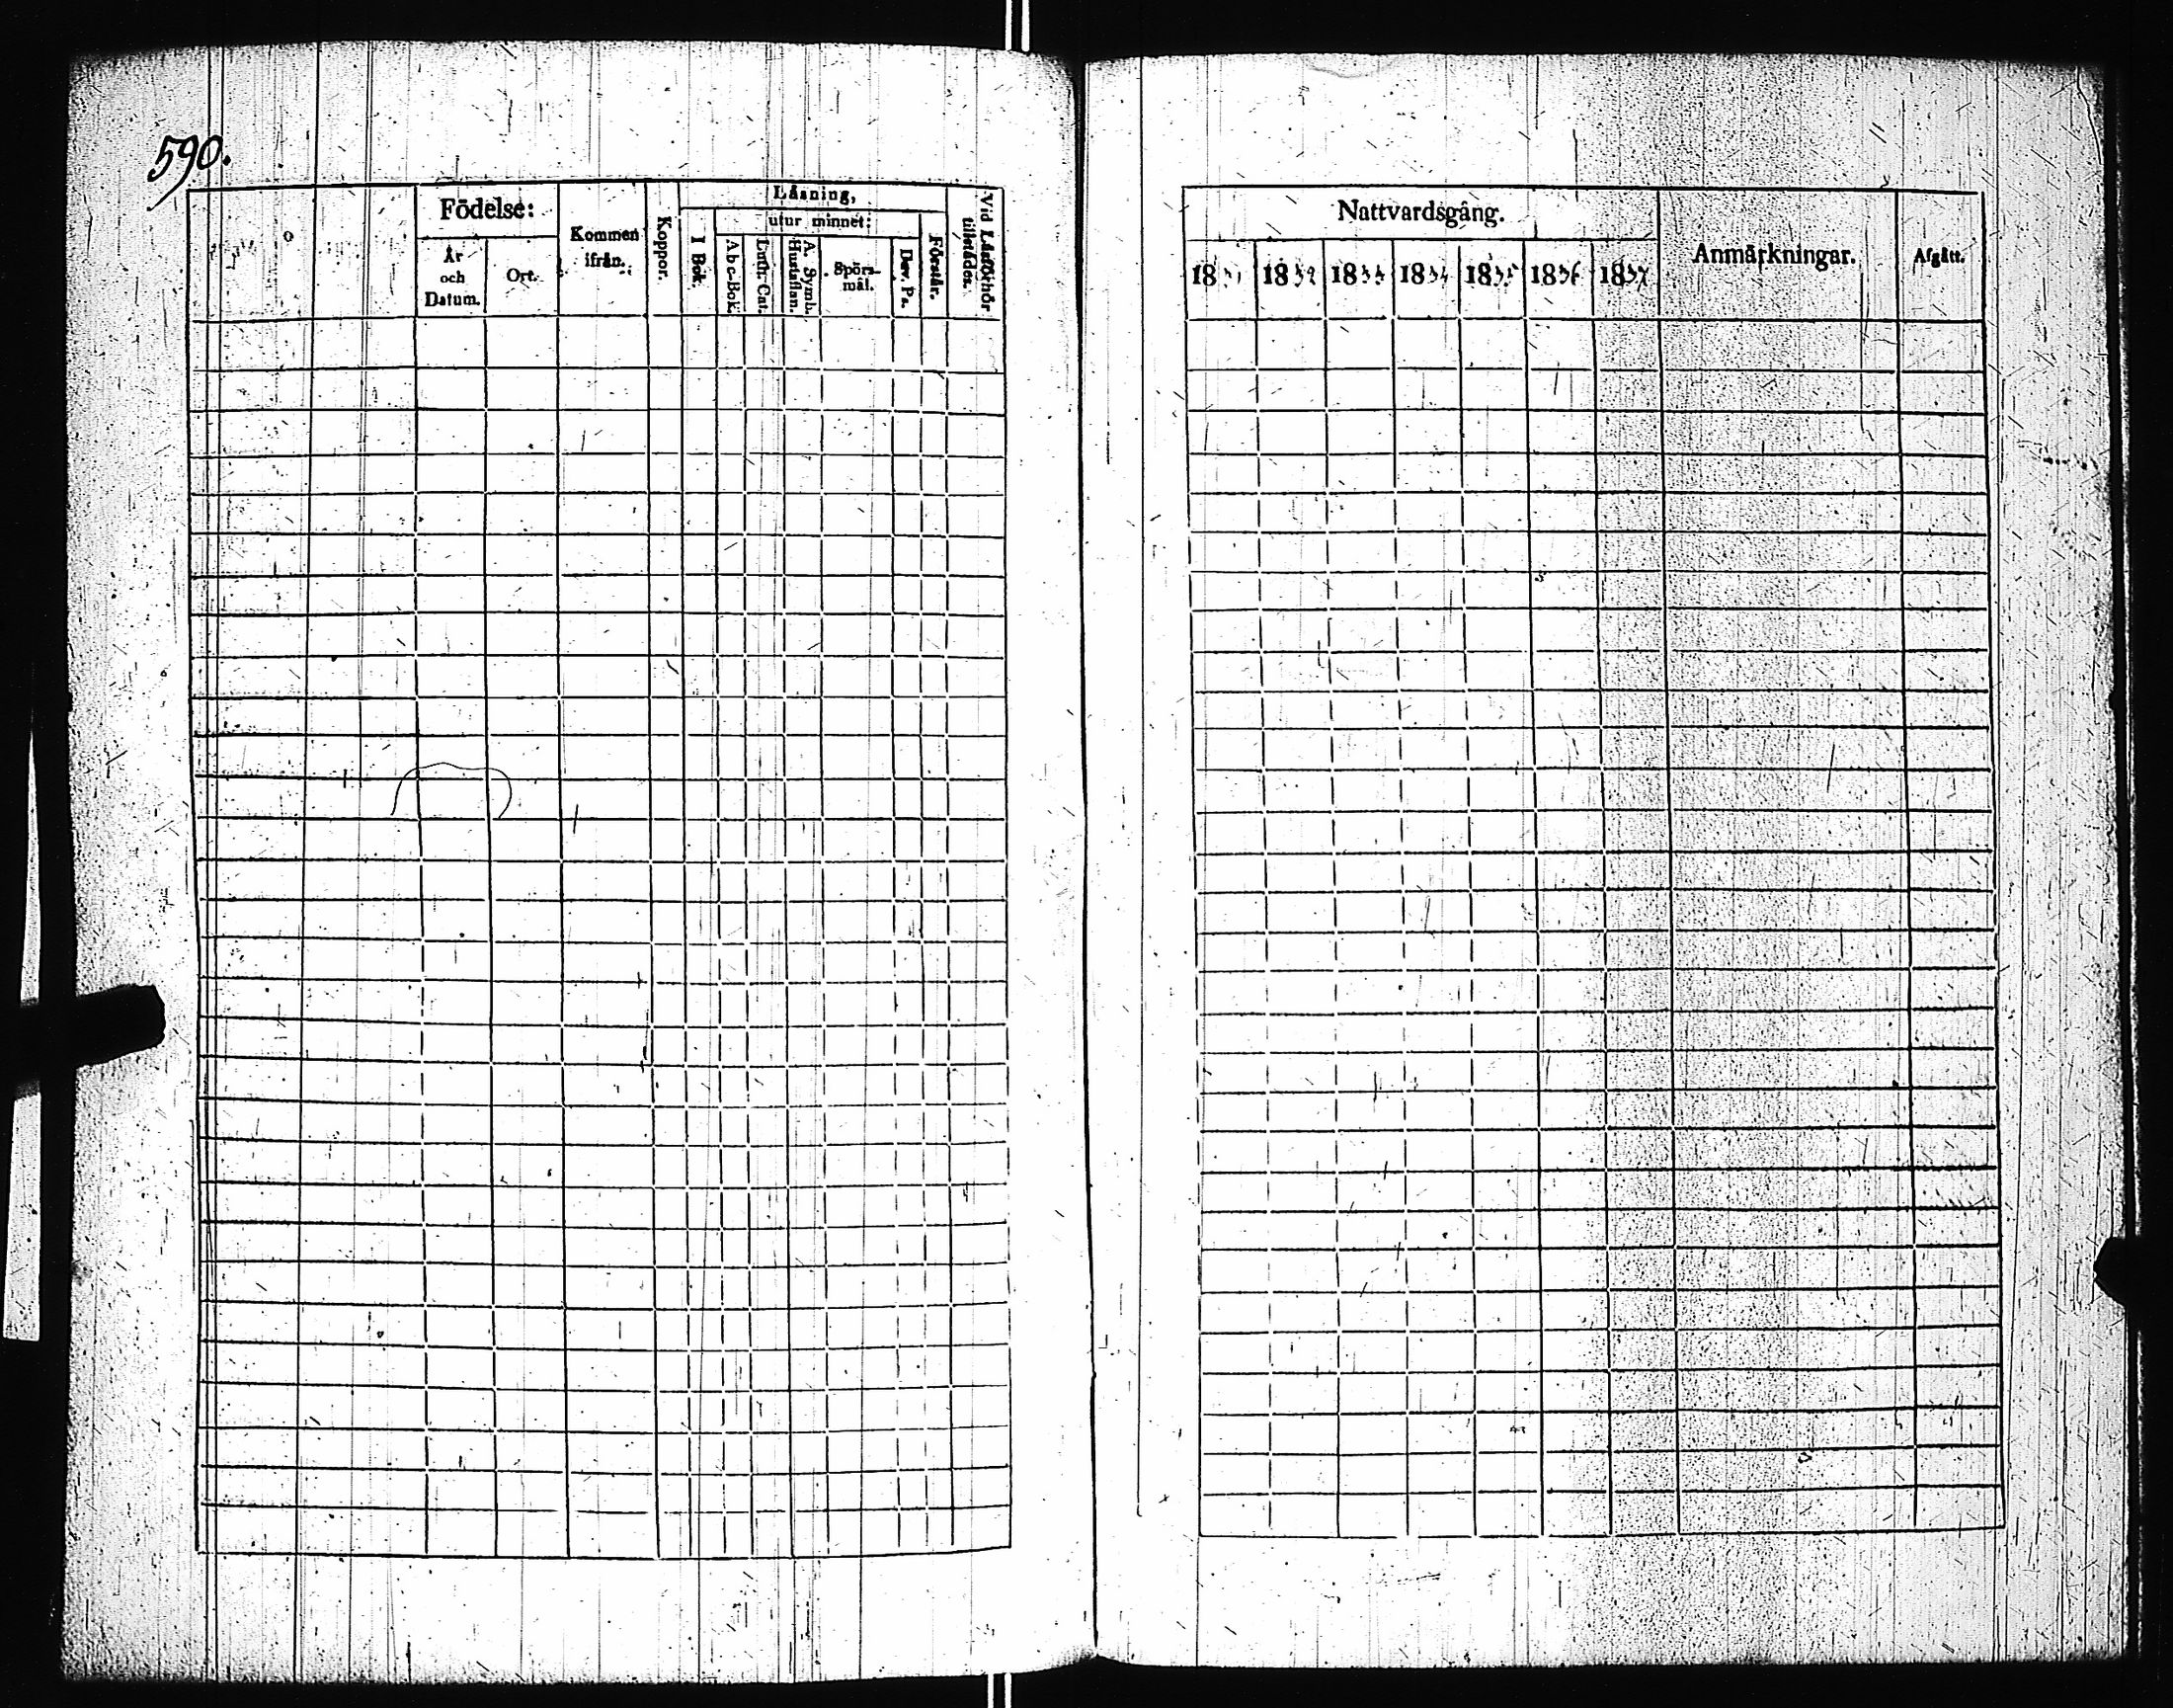 590.
Födelse:
År och Datum.
Ort.
Kommen ifrån.
Koppor.
Läsning,
I Bok.
utur minnet:
Abc-Bok.
Luth. Cat.
A. Symb. Hustaflan.
Spörs-
mål.
Dav. Ps.
Förstår.
Vid Läsförhör tillstädes.
Nattvardsgång.
1831 1832 1833 1834 1835 1836 1837
Anmärkningar.
Afgått.